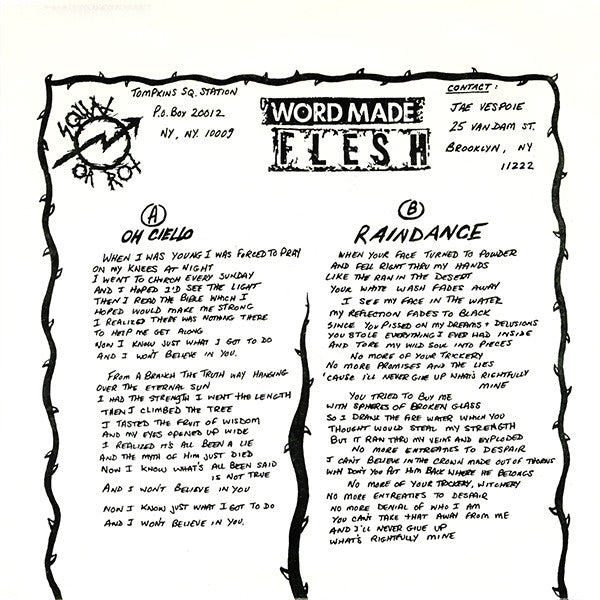 SQUAT
OR ROT
TOMPKINS SQ. STATION
P.O. BOY 20012
NY, NY. 10009
WORD MADE
FLESH
CONTACT:
JAE VESPOIE
25 VANDAM ST.
BROOKLYN, NY
11222
A
OH CIELLO
WHEN I WAS YOUNG I WAS FORCED TO PRAY
ON MY KNEES AT NIGHT
I WENT TO CHURCH EVERY SUNDAY
AND I HOPED I'D SEE THE LIGHT
THEN I READ THE BIBLE WHICH I
HOPED WOULD MAKE ME STRONG
I REALIZED THERE WAS NOTHING THERE
TO HELP ME GET ALONG
NOW I KNOW JUST WHAT I GOT TO DO
AND I WON'T BELIEVE IN YOU.
FROM A BRANCH THE TRUTH WAY HANGING
OVER THE ETERNAL SUN
I HAD THE STRENGTH I WENT THE LENGTH
THEN I CLIMBED THE TREE
I TASTED THE FRUIT OF WISDOM
AND MY EYES OPENED UP WIDE
I REALIZED IT'S ALL BEEN A LIE
AND THE MYTH OF HIM JUST DIED
NOW I KNOW WHAT'S ALL BEEN SAID
IS NOT TRUE
AND I WON'T BELIEVE IN YOU
NOW I KNOW JUST WHAT I GOT TO DO
AND I WON'T BELIEVE IN YOU.
B
RAINDANCE
WHEN YOUR FACE TURNED TO POWDER
AND FELL RIGHT THRU MY HANDS
LIKE THE RAIN IN THE DESERT
YOUR WHITE WASH FADES AWAY
I SEE MY FACE IN THE WATER
MY REFLECTION FADES TO BLACK
SINCE YOU PISSED ON MY DREAMS + DELUSIONS
YOU STOLE EVERYTHING I EVER HAD INSIDE
AND TORE MY WILD SOUL INTO PIECES
NO MORE OF YOUR TRICKERY
NO MORE PROMISES AND THE LIES
'CAUSE I'LL NEVER GIVE UP WHAT'S RIGHTFULLY
MINE
YOU TRIED TO BUY ME
WITH SPHERES OF BROKEN GLASS
SO I DRANK THE FIRE WATER WHICH YOU
THOUGHT WOULD STEAL MY STRENGTH
BUT IT RAN THRU MY VEINS AND EXPLODED
NO MORE ENTREATIES TO DESPAIR
I CAN'T BELIEVE IN THE CROWN MADE OUT OF THORNS
WHY DON'T YOU PUT HIM BACK WHERE HE BELONGS
NO MORE OF YOUR TRICKERY, WITCHERY
NO MORE ENTREATIES TO DESPAIR
NO MORE DENIAL OF WHO I AM
YOU CAN'T TAKE THAT AWAY FROM ME
AND I'LL NEVER GIVE UP
WHAT'S RIGHTFULLY MINE